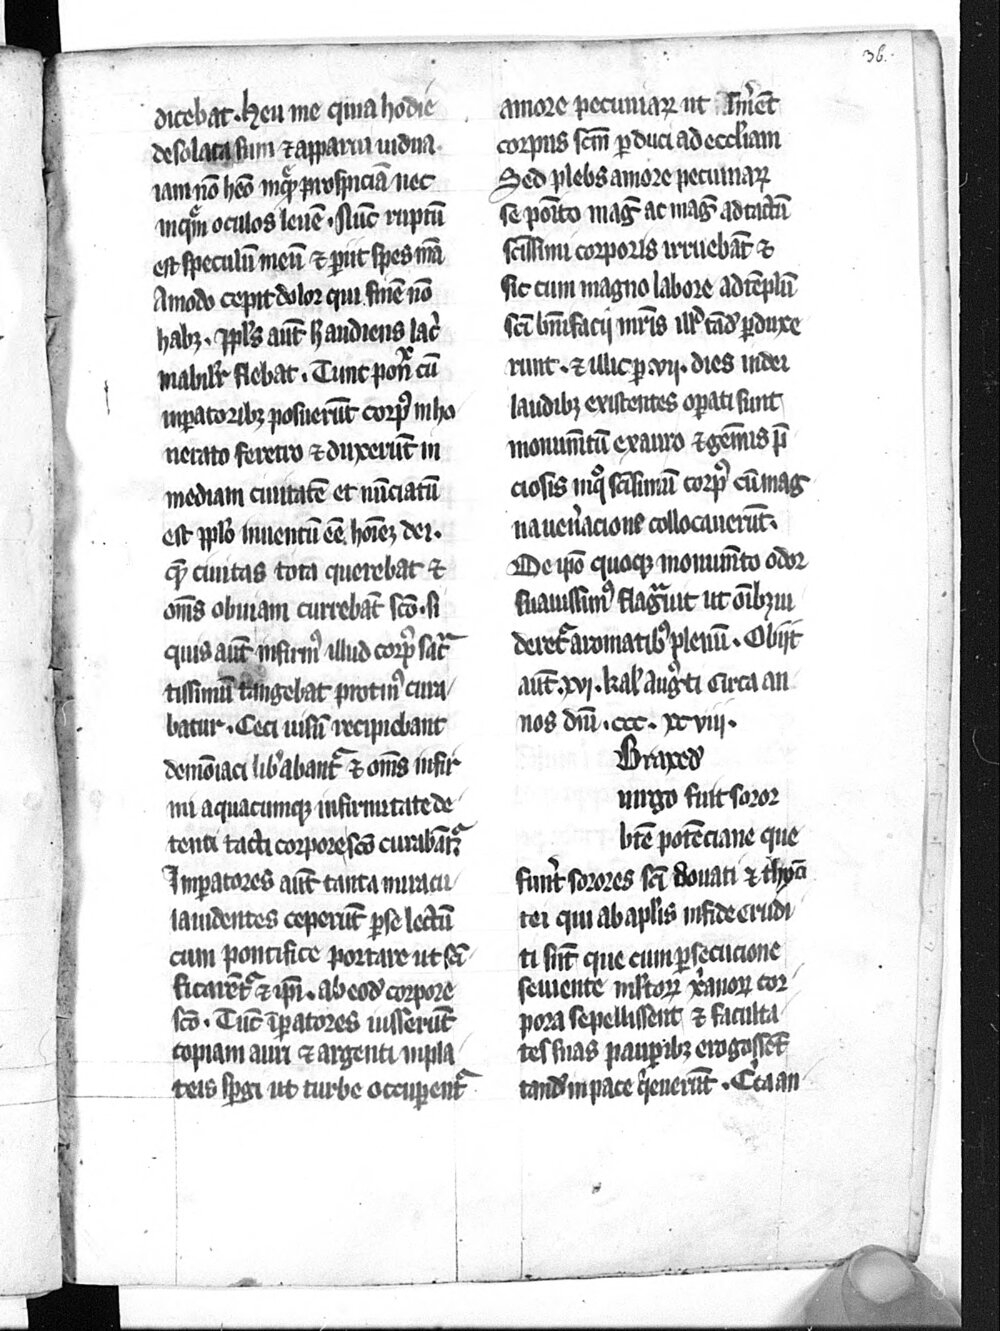 36.
dicebat. heu me quia hodie
desolata sum ⁊ apparui uidua
iam nō heō inqͣ prospiciā nec
inqͣm oculos leuē. Nūc ruptū
est speculū meū ⁊ ꝑiit spes mā
Amodo cepit dolor qui finē nō
habꝫ. ppl̄s aūt h audiens lacͥ
mabilit̄ flebat. Tunc pon̄x cū
inꝑatoribꝫ posuerūt corpꝰ in ho
norato feretro ⁊ duxerūt in
mediam ciuitatē et nūciatū
est ppl̄o inuentū eē hoīeꝫ dei.
qͣ̄ ciuitas tota querebat ⁊
om̄s obuiam currebāt scō. si
quis aūt infirmꝰ illud corpꝰ sac̄
tissimū tangebat protinꝰ cura
batur. Ceci uisū recipiebant
demōiaci lib̄abantͬ ⁊ om̄s infir
mi a quacumqꝫ infirmitate de
tenti tacti corpore scō curabātͬ.
Inꝑatores aūt tanta miracu
la uidentes ceperūt ꝑ se lectū
cum pontifice portare ut scī
ficarētͬ ⁊ ip̄i. ab eod̄ corpore
scō. Tūc īꝑatores iusserūt
copiam auri ⁊ argenti in pla
teis spͬgi ut turbe occuparentͬ
amore pecuniaꝝ ut sin̄ēt
corpus scm̄ ꝑduci ad eccl̄iam
Sed plebs amore pecuniaꝝ
se poīto maḡ ac maḡ ad tactū
scīssimi corporis irruebāt ⁊
sic cum magno labore ad tēplū
scī bonifacii mr̄is ill̄d tād̄ ꝑduxe
runt. ⁊ illic ꝑ .vij. dies in dei
laudibꝫ existentes oꝑati sunt
monumētū ex auro ⁊ gēmis p̄
ciosis in qͦ scīsimū corpꝰ cū mag
na uen̄acione collocauerūt.
De ip̄o quoqꝫ monumēto odor
suauissimꝰ flagͣuit ut oībꝫ ui
deretͬ aromatibꝰ plenū. Obijt
aūt .xvj. kal̄ augͧsti circa an
nos dn̄i .ccc. xcviij.
Braxed̄
uirgo fuit soror
btē potēciane que
fuer̄t sorores scī douati ⁊ thyō
tei qui ab apl̄is in fide erudi
ti sūt que cum ꝑsecucione
seuiente ml̄toꝝ xͥanoꝝ cor
pora sepellissent ⁊ faculta
tes suas pauꝑibꝫ erogossēt
tand̄ in pace qͥeuerūt. Cͥca an